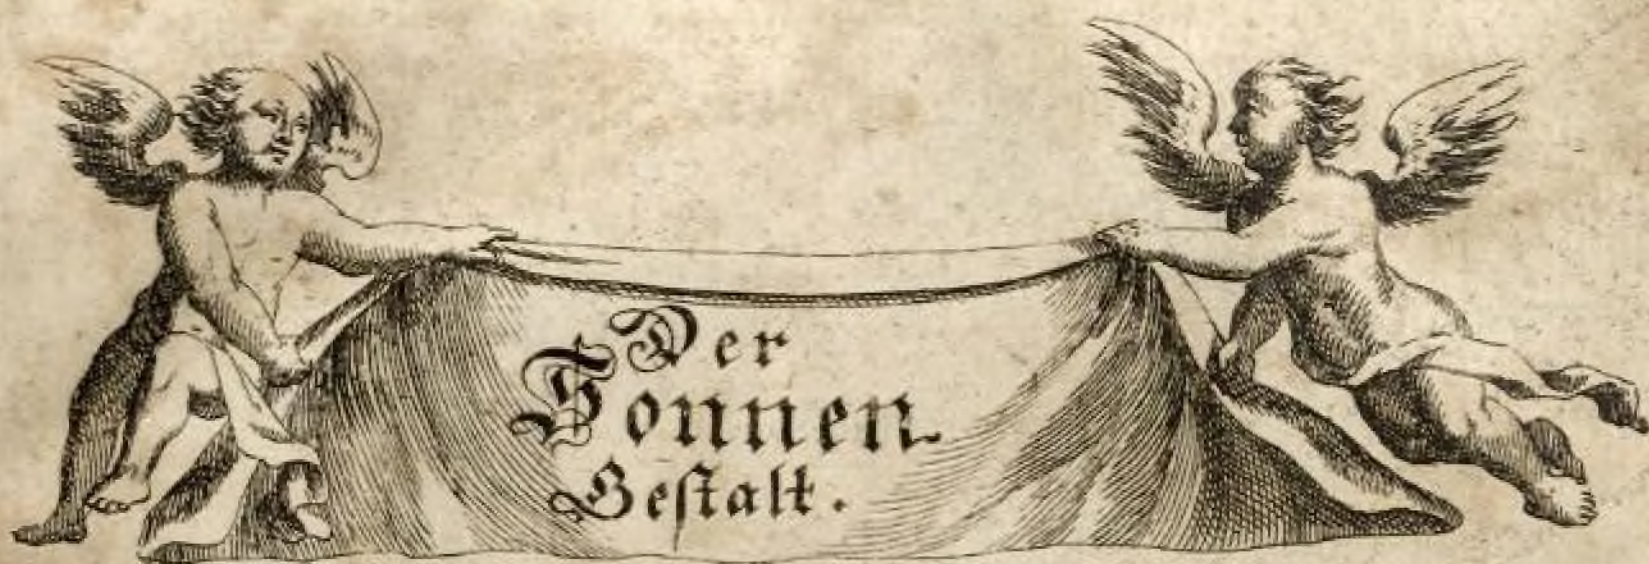 Der
Sonnen
Gestalt.